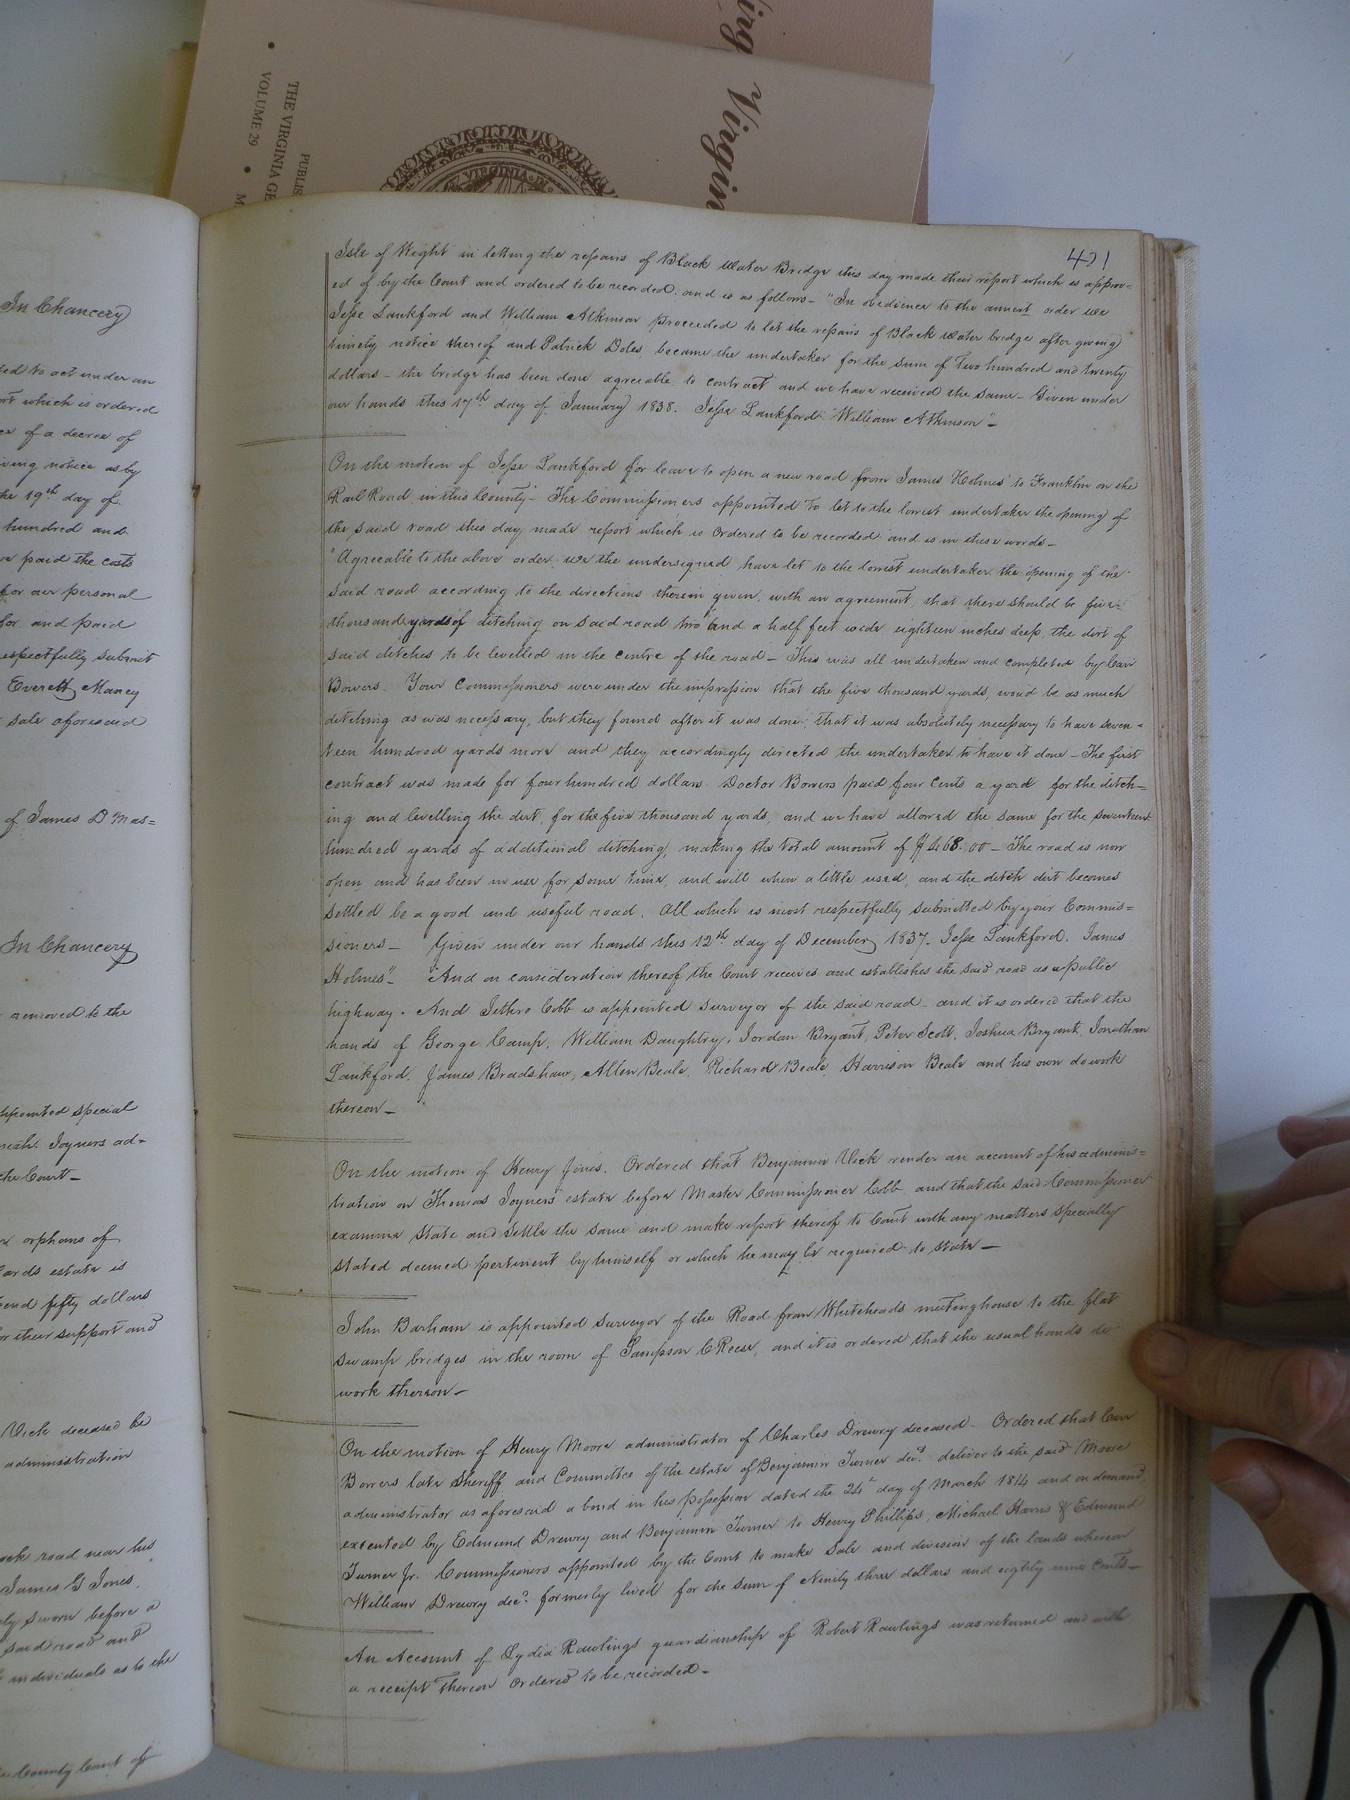 Virgin
VIRGINIA
PUBLIS
THE VIRGINIA GE
VOLUME 29
In Chancery
ed to act under an
which is ordered
of a decree of
iving notice as by
he 19th day of
hundred and
paid the costs
for our personal
for and paid
espectfully submit
Everett, Maney
sale aforesaid
of James D Mas=
In Chancery
removed to the
appointed special
Joyners ad-
the Court-
orphans of
ards estate is
and fifty dollars
for their support and
Vick deceased be
administration
road near his
James G Jones,
ly sworn before a
said road and
individuals as to the
County Court of
421
Isle of Wight in letting the repairs of Black Water Bridge this day made their report which is approv-
ed of by the Court and ordered to be recorded. and is as follows- "In obedience to the annext order we
Jesse Lankford and William Atkinson proceeded to let the repairs of Black Water bridge after giving
timely notice thereof and Patrick Doles became the undertaker for the sum of Two hundred and twenty
dollars- the bridge has been done agreeable to contract and we have received the same- Given under
our hands this 17th day of January 1838. Jesse Lankford William Atkinson"-
On the motion of Jesse Lankford for leave to open a new road from James Holmes' to Franklin on the
Rail Road in this County- The Commissioners appointed to let to the lowest undertaker the opening of
the said road this day made report which is ordered to be recorded and is in these words-
"Agreeable to the above order we the undersigned have let to the lowest undertaker the opening of the
said road according to the directions therein given, with an agreement, that there should be five
thousand yards of ditching on said road two and a half feet wide eighteen inches deep, the dirt of
said ditches to be levelled in the centre of the road- This was all undertaken and completed by Carr
Bowers. Your Commissioners were under the impression that the five thousand yards, woud be as much
ditching as was necessary, but they found after it was done, that it was absolutely necessary to have seven-
teen hundred yards more and they accordingly directed the undertaker to have it done- The first
contract was made for four hundred dollars Doctor Bowers paid four Cents a yard for the ditch-
ing and levelling the dirt, for the five thousand yards, and we have allowed the same for the seventeen
hundred yards of additional ditching, making the total amount of $468.00- The road is now
open, and has been in use for some time, and will when a little used, and the ditch dirt becomes
settled be a good and useful road. All which is most respectfully submitted by your Commis=
sioners- Given under our hands this 12th day of December 1837- Jesse Lankford. James
Holmes"- And on consideration thereof the Court receives and establishes the said road as a public
highway. And Jethro Cobb is appointed Surveyor of the said road- and it is ordered that the
hands of George Camp, William Daughtry, Jordan Bryant, Peter Scott, Joshua Bryant, Jonathan
Lankford, James Bradshaw, Allen Beale, Richard Beale, Harrison Beale and his own do work
thereon-
On the motion of Henry Jones. Ordered that Benjamin Vick render an account of his adminis=
tration on Thomas Joyners estate before Master Commissioner Cobb and that the said Commissioner
examine State and Settle the same and make report thereof to Court with any matters specially
stated deemed pertinent by himself or which he may be required to state-
John Barham is appointed Surveyor of the Road from Whiteheads meetinghouse to the flat
swamp bridges in the room of Sampson C Reese, and it is ordered that the usual hands do
work thereon-
On the motion of Henry Moore administrator of Charles Drewry deceased- Ordered that Carr
Bowers late Sheriff and Committee of the estate of Benjamin Turner decd. deliver to the said Moore
administrator as aforesaid a bond in his possession dated the 24th day of March 1814 and on demand,
executed by Edmund Drewry and Benjamin Turner to Henry Phillips, Michael Harris & Edmund
Turner Jr. Commissioners appointed by the Court to make Sale and division of the lands whereon
William Drewry decd. formerly lived for the sum of Ninity three dollars and eightly nine cents-
An Account of Lydia Rawlings guardianship of Robert Rawlings was returned and with
a receipt thereon Ordered to be recorded-